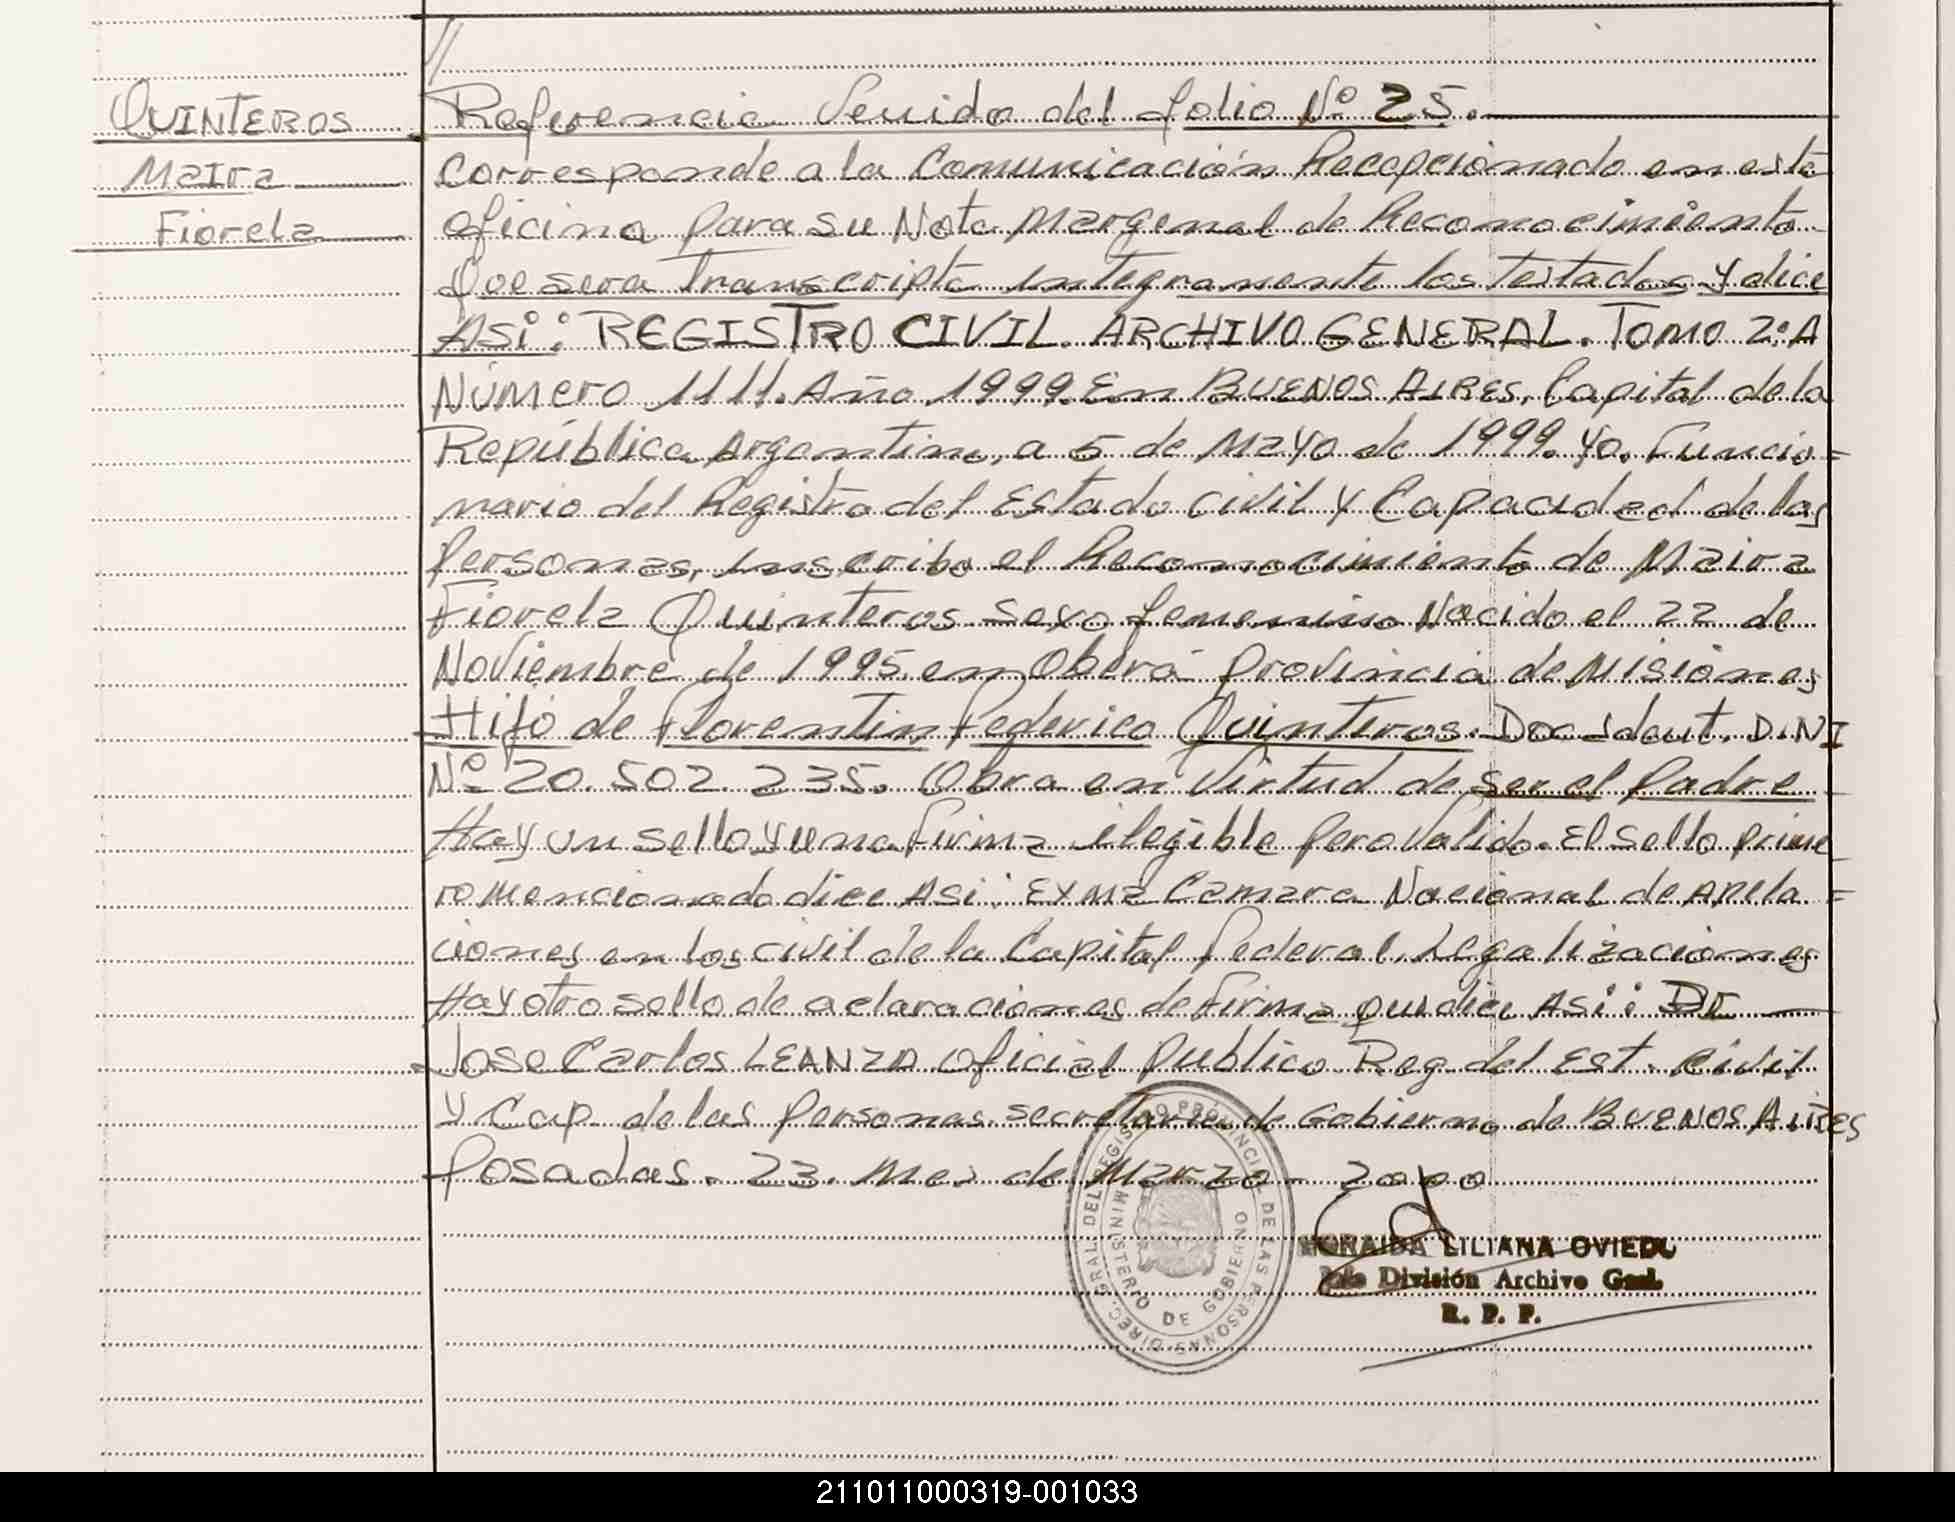 //
QUINTEROS
Maira
Fiorela
Referencia Venida del folio Nº 25.
corresponde a la Comunicación Recepcionada en esta
oficina para su Nota Marginal de Reconocimiento
Que sera Transcripta integramente los Testados y dice
Asi: REGISTRO CIVIL. ARCHIVO GENERAL. TOMO 2º A
Número 1111. Año 1999. En BUENOS AIRES, Capital de la
República Argentina, a 5 de Mayo de 1999. yo. Funcio=
nario del Registro del Estado civil y Capacided de las
Personas, inscribo el Reconocimiento de Maira
Fiorela Quinteros sexo femenino Nacido el 22 de
Noviembre de 1995. en Oberá Provincia de Misiones
Hijo de Florentin Federico Quinteros. Doc. Ident. D.NI
Nº 20.502.235. Obra en Virtud de ser el Padre
Hay un sello y una Firma ilegible Pero Valido. El sello prime
ro mencionado dice Asi: EXMA Camara Nacional de Apela=
ciones en los civil de la Capital Federal. Legalizaciones
Hay otro sello de aclaraciones de Firma que dice Asi: Dr
Jose Carlos LEANZA Oficial Publico Reg. del Est. Civil
y Cap. de las Personas. secretaria de Gobierno de BUENOS AIRES
Posadas. 23. Mes de Marzo - 2000
DIREC. GRAL. DEL REGISTRO PROVINCIAL DE LAS PERSONAS
MINISTERIO DE GOBIERNO
LILIANA OVIEDO
División Archivo Gral.
R. P. P.
211011000319-001033